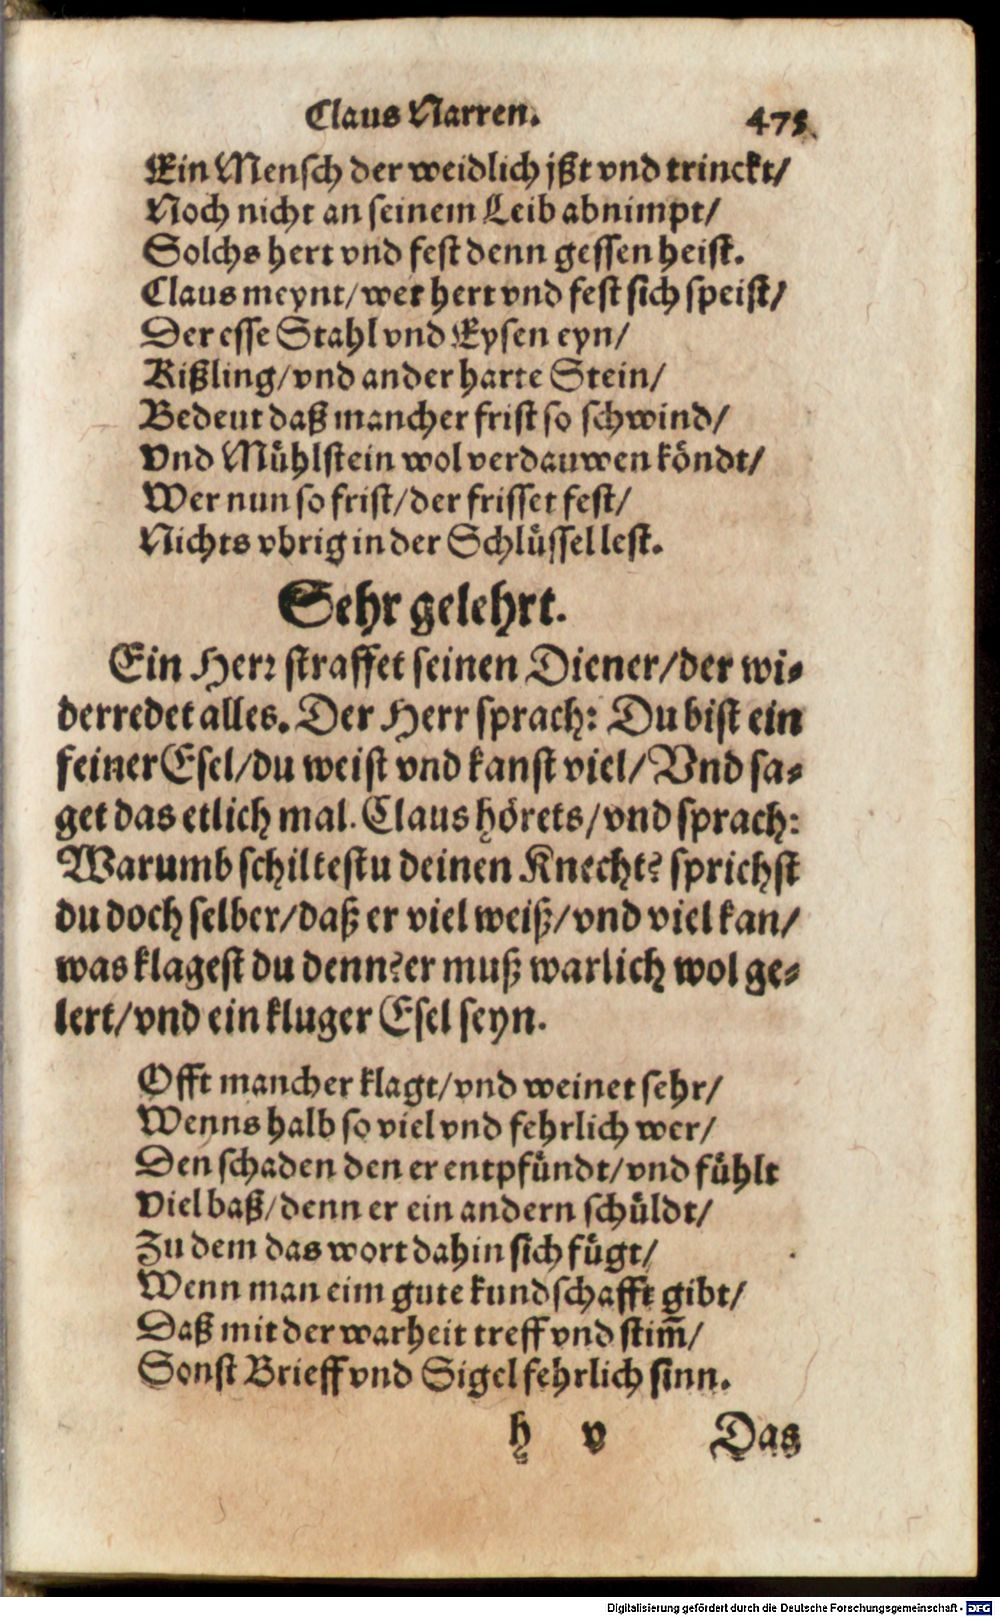 Claus Narren. 475.
Ein Mensch der weidlich jßt vnd trinckt/
Noch nicht an seinem Leib abnimpt/
Solchs hert vnd fest denn gessen heist.
Claus meynt/wer hert vnd fest sich speist/
Der esse Stahl vnd Eysen eyn/
Kißling/vnd ander harte Stein/
Bedeut daß mancher frist so schwind/
Vnd Mühlstein wol verdauwen köndt/
Wer nun so frist/der frisset fest/
Nichts vbrig in der Schlüssel lest.
Sehr gelehrt.
Ein Herr straffet seinen Diener/der wi-
derredet alles. Der Herr sprach: Du bist ein
feiner Esel/du weist vnd kanst viel/Vnd sa-
get das etlich mal. Claus hörets/vnd sprach:
Warumb schiltestu deinen Knecht? sprichst
du doch selber/daß er viel weiß/vnd viel kan/
was klagest du denn? er muß warlich wol ge-
lert/vnd ein kluger Esel seyn.
Offt mancher klagt/vnd weinet sehr/
Wenns halb so viel vnd fehrlich wer/
Den schaden den er entpfündt/vnd fühlt
Viel baß/denn er ein andern schüldt/
Zu dem das wort dahin sich fügt/
Wenn man eim gute kundschafft gibt/
Daß mit der warheit treff vnd stim̃/
Sonst Brieff vnd Sigel fehrlich sinn.
h v Das
Digitalisierung gefördert durch die Deutsche Forschungsgemeinschaft - DFG